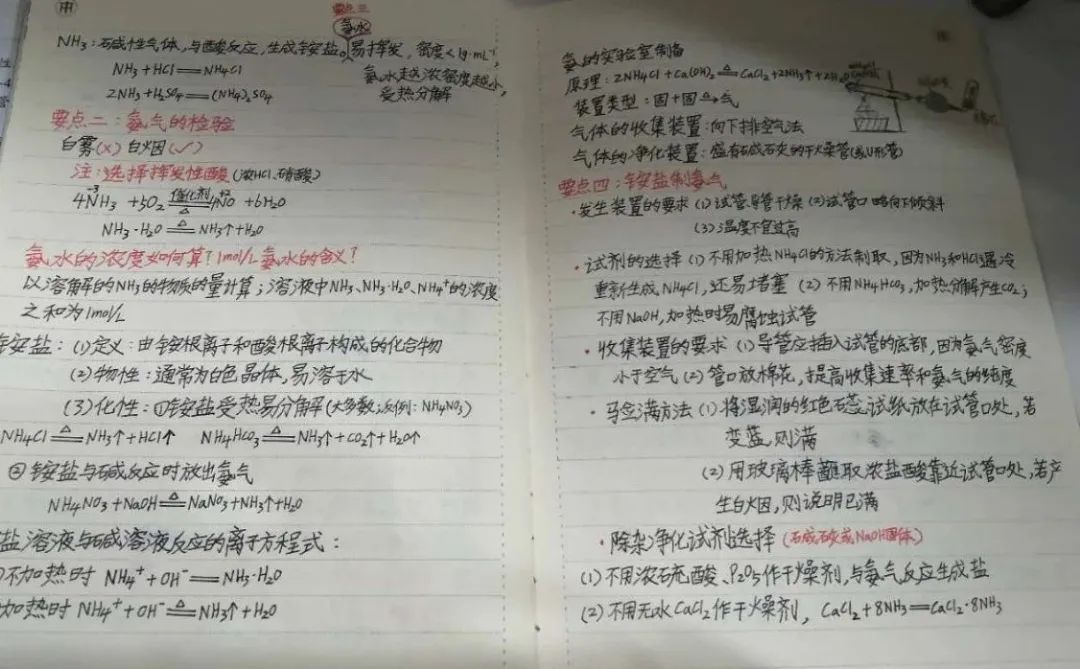 要点三
氨水
NH₃:碱性气体,与酸反应,生成铵盐。易挥发,密度<1g·mL⁻¹,
NH₃+HCl══NH₄Cl 氨水越浓密度越小,
2NH₃+H₂SO₄══(NH₄)₂SO₄ 受热分解
要点二:氨气的检验
白雾(×)白烟(✓)
注:选择挥发性酸(浓HCl、硝酸)
4N⁻³H₃ +5O₂ 催化剂══△ 4N⁺²O +6H₂O
NH₃·H₂O ══△ NH₃↑+H₂O
氨水的浓度如何算?1mol/L氨水的含义?
以溶解的NH₃的物质的量计算;溶液中NH₃、NH₃·H₂O、NH₄⁺的浓度
之和为1mol/L
铵盐:(1)定义:由铵根离子和酸根离子构成的化合物
(2)物性:通常为白色晶体,易溶于水
(3)化性:①铵盐受热易分解(大多数;反例:NH₄NO₃)
NH₄Cl ══△ NH₃↑+HCl↑ NH₄HCO₃ ══△ NH₃↑+CO₂↑+H₂O↑
②铵盐与碱反应时放出氨气
NH₄NO₃+NaOH ══△ NaNO₃+NH₃↑+H₂O
盐溶液与碱溶液反应的离子方程式:
不加热时 NH₄⁺+OH⁻══NH₃·H₂O
加热时 NH₄⁺+OH⁻ ══△ NH₃↑+H₂O
氨的实验室制备
原理:2NH₄Cl+Ca(OH)₂ ══△ CaCl₂+2NH₃↑+2H₂O
装置类型:固+固 △→气
气体的收集装置:向下排空气法
气体的净化装置:盛有碱石灰的干燥管(或U形管)
要点四:铵盐制氨气
·发生装置的要求 (1)试管导管干燥 (2)试管口略向下倾斜
(3)温度不宜过高
·试剂的选择 (1)不用加热NH₄Cl的方法制取,因为NH₃和HCl遇冷
重新生成NH₄Cl,还易堵塞 (2)不用NH₄HCO₃,加热分解产生CO₂;
不用NaOH,加热时易腐蚀试管
·收集装置的要求 (1)导管应插入试管的底部,因为氨气密度
小于空气 (2)管口放棉花,提高收集速率和氨气的纯度
·验满方法 (1)将湿润的红色石蕊试纸放在试管口处,若
变蓝,则满
(2)用玻璃棒蘸取浓盐酸靠近试管口处,若产
生白烟,则说明已满
·除杂净化试剂选择 (碱石灰或NaOH固体)
(1)不用浓硫酸、P₂O₅作干燥剂,与氨气反应生成盐
(2)不用无水CaCl₂作干燥剂,CaCl₂+8NH₃══CaCl₂·8NH₃